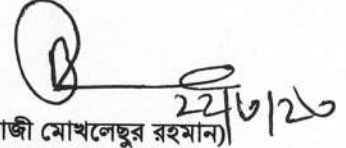 22/৩/২৩
জী মোখলেছুর রহমান)